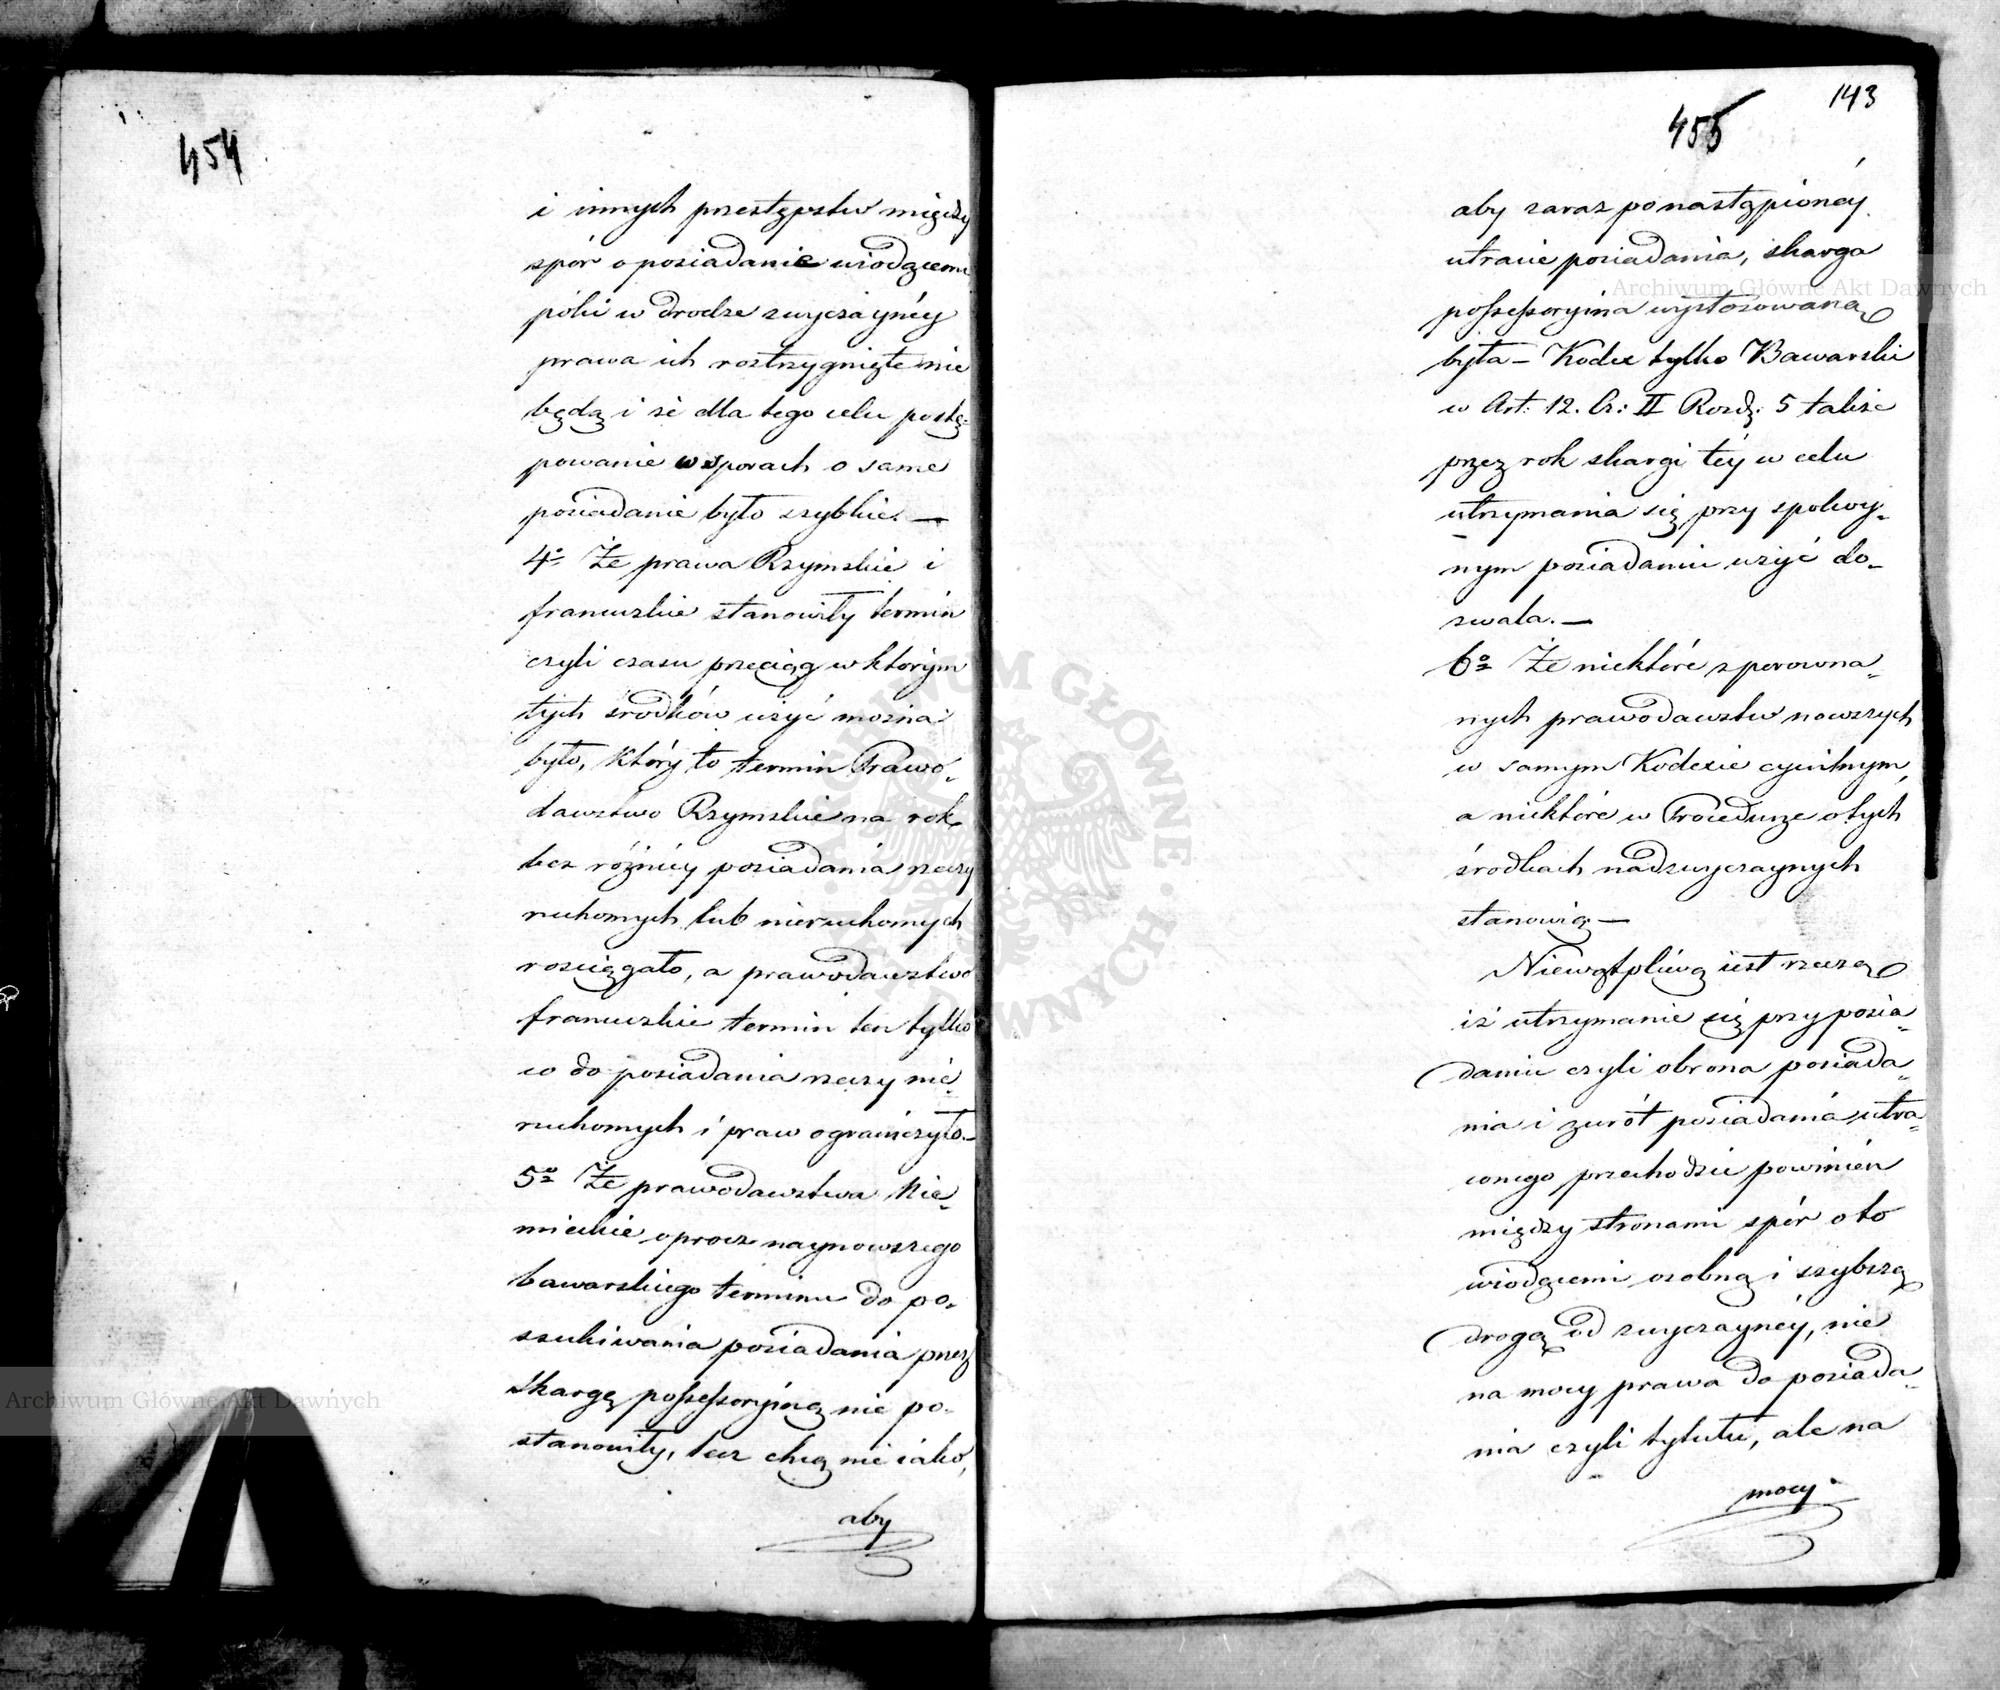 454
i innych przestępstw między
spór o posiadanie wiodącemi
póki w drodze zwyczaynéy
prawa ich rostrzygnięte nie
będą i że dla tego celu postę-
powanie w sporach o same
posiadanie było szybkie. —
4o Że prawa Rzymskie i
francuzkie stanowiły termin
czyli czasu przeciąg w którym
tych środków użyć można
było, który to termin Prawo-
dawstwo Rzymskie na rok
bez różnicy posiadania rzeczy
ruchomych lub nieruchomych
rosciągało, a prawodawstwo
francuzkie termin ten tylko
co do posiadania rzeczy nie-
ruchomych i praw ograniczyło.—
5o Że prawodawstwa Nie-
mieckie oprocz naynowszego
bawarskiego terminu do po-
szukiwania posiadania przez
skargę possessoryiną nie po-
stanowiły, lecz chcą nieiako,
aby
143
455
aby zaraz po nastąpionéy
utracie posiadania, skarga
possessoryina wystosowaną
była — Kodex tylko Bawarski
w Art: 12. Cz: II Rozdz: 5 takze
przez rok skargi téy w celu
utrzymania się przy spokoy-
nym posiadaniu użyć do-
zwala. —
6o Że niektóre z porowna-
nych prawodawstw nowszych
w samym Kodexie cywilnym,
a niektóre w Procedurze o tych
środkach nadzwyczaynych
stanowią —
Niewątpliwą iest rzeczą
iż utrzymanie się przy posia-
daniu czyli obrona posiada-
nia i zwrót posiadania utra-
conego przechodzić powinien
między stronami spór o to
wiodącemi osobną i szybszą
drogą od zwyczaynéy, nie
na mocy prawa do posiada-
nia czyli tytułu, ale na
mocy
Archiwum Główne Akt Dawnych
Archiwum Główne Akt Dawnych
ARCHIWUM GŁÓWNE AKT DAWNYCH